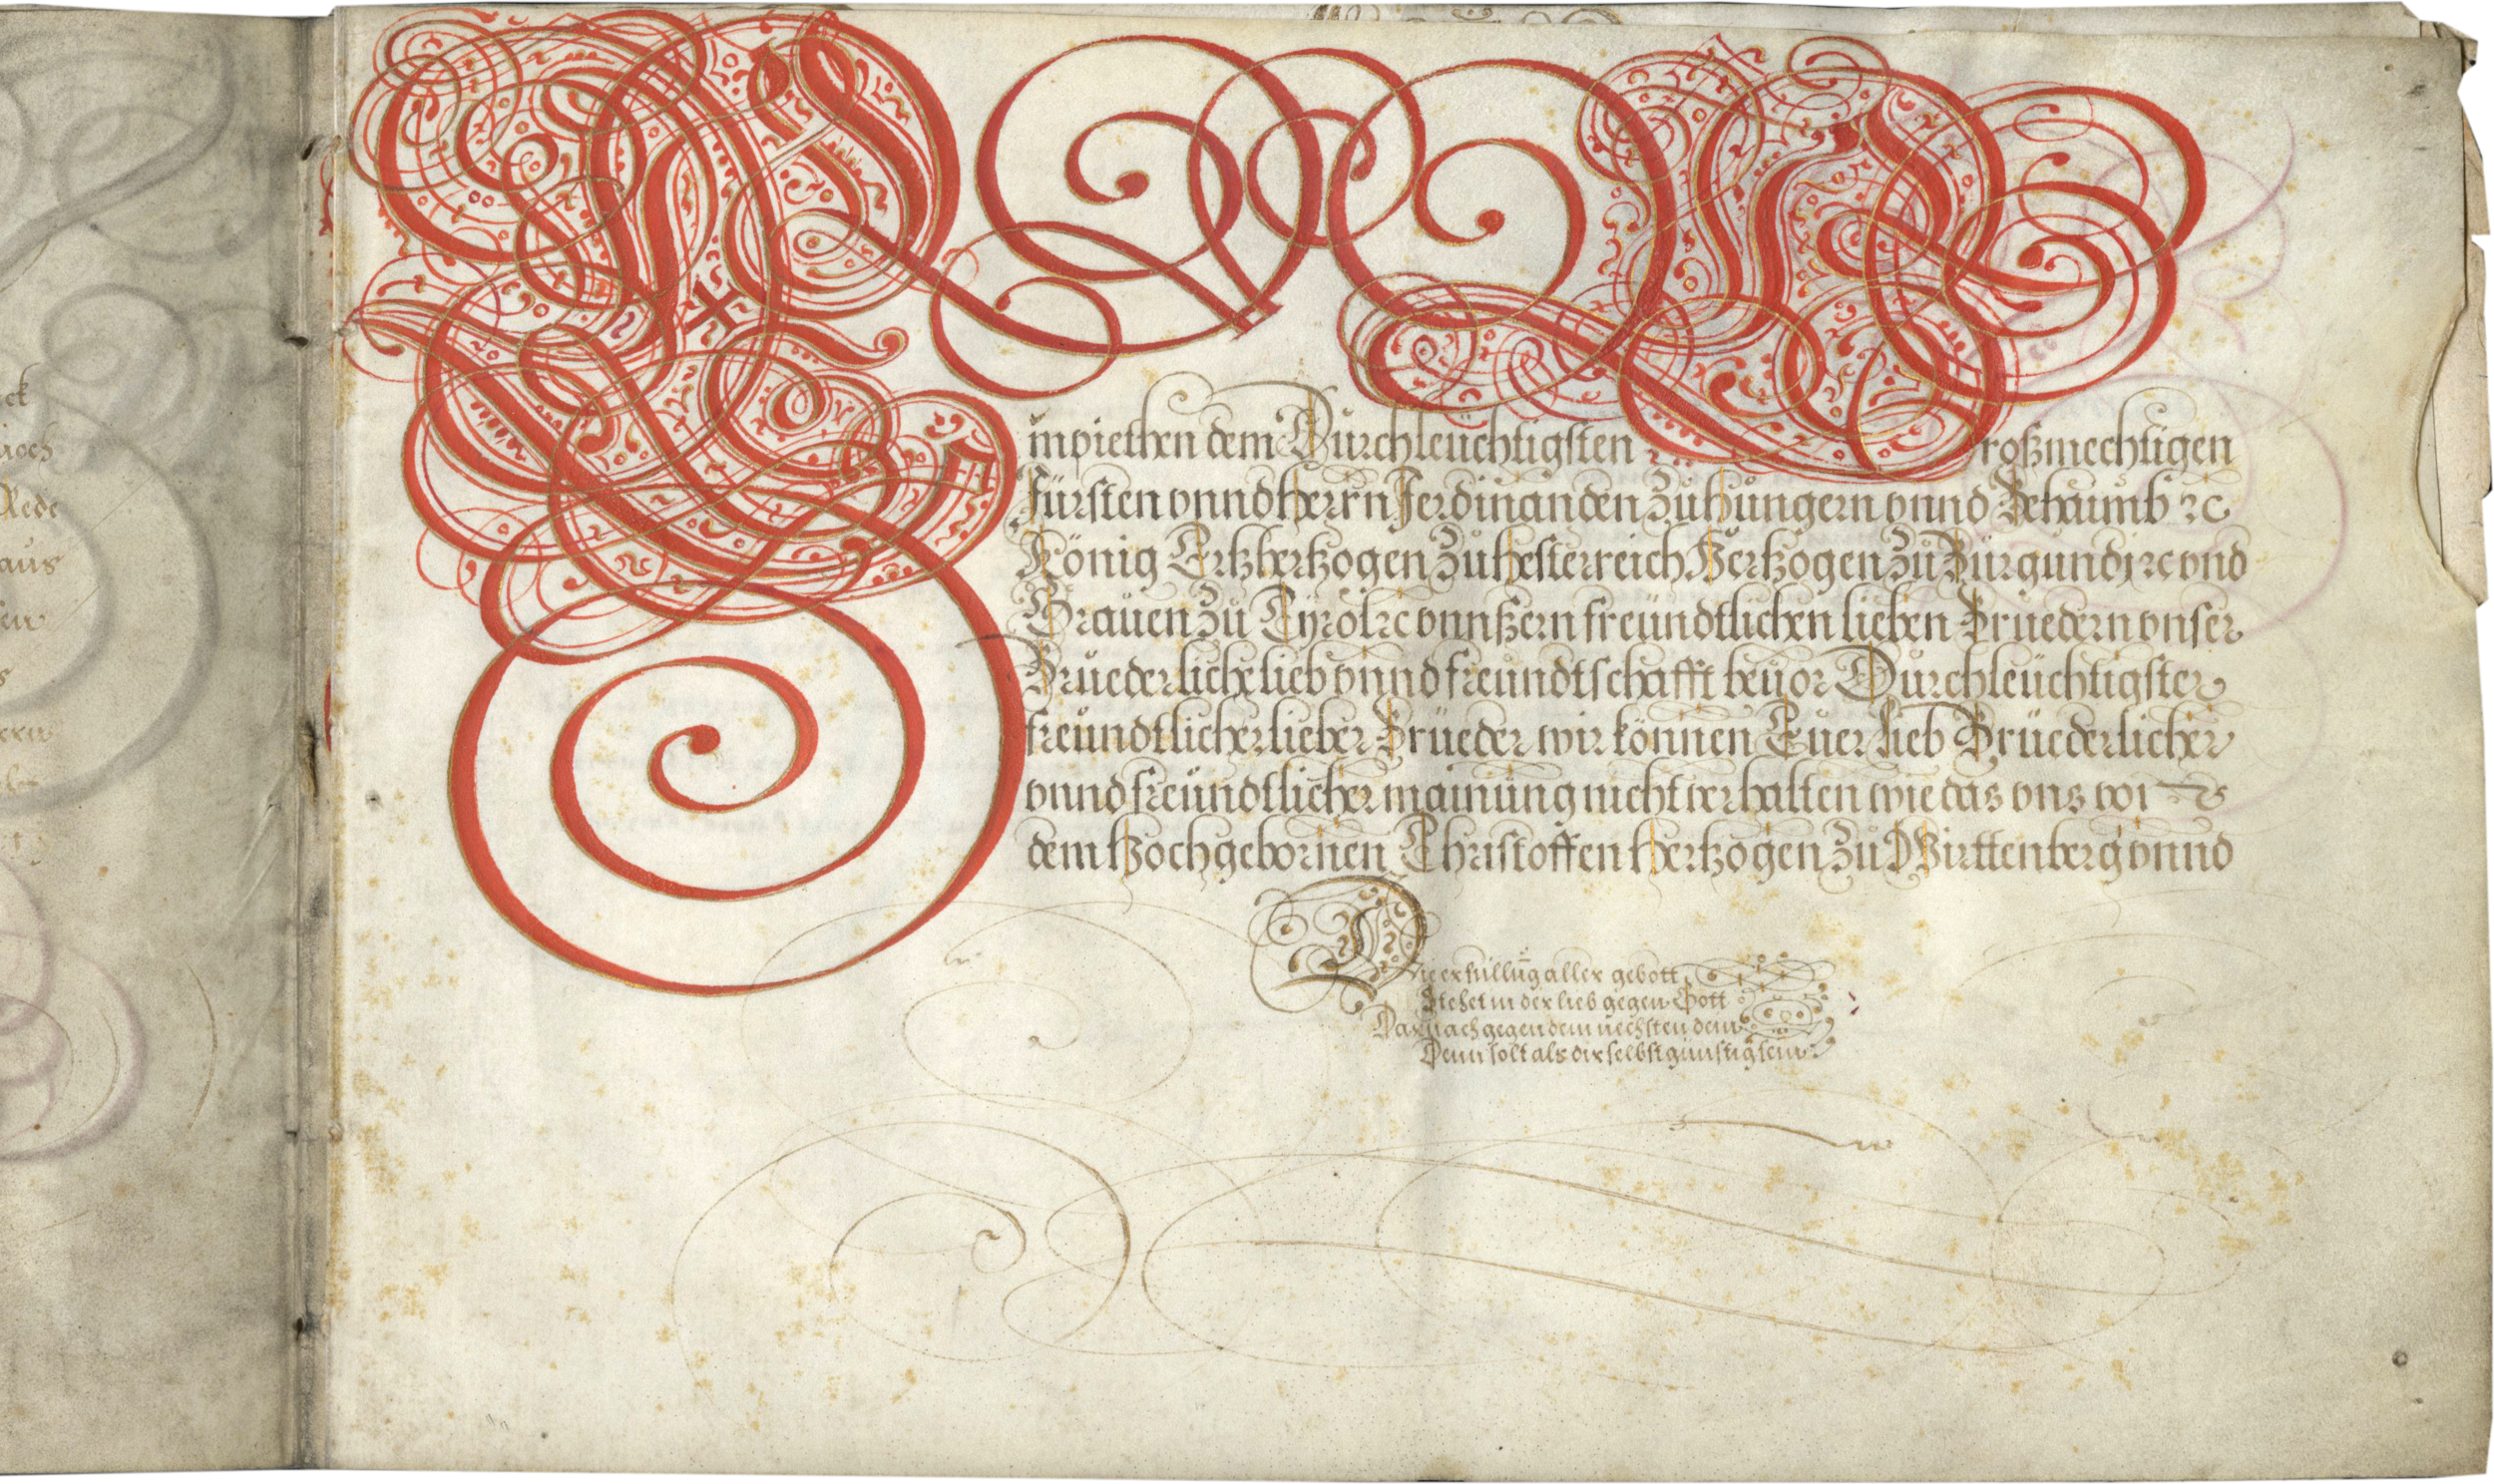 ck
Rede
aus
Empiethen dem Durchleüchtigsten Großmechtigen
Fürsten vnnd Herrn Ferdinanden zu Hungern vnnd Behaimb ꝛc
König Ertzhertzogen zu Hesterreich Hertzogen zu Burgundj ꝛc vnd
Grauen zu Tyrol ꝛc vnnßern freündtlichen lieben Bruedern vnser
Brüederliche lieb vnnd freündtschafft beüor Durchleüchtigster
freündtlicher lieber Brüeder wir können Euer lieb Brüederlicher
vnnd freündtlicher mainung nicht verhalten wie das vns von
dem Hochgebornen Christoffen Hertzogen zu Wirttenberg vnnd
Die erfüllūg aller gebott
Stehet in der lieb gegen Gott
Darnach gegen dem nechsten dein
Denn solt als dir selbst günstig sein